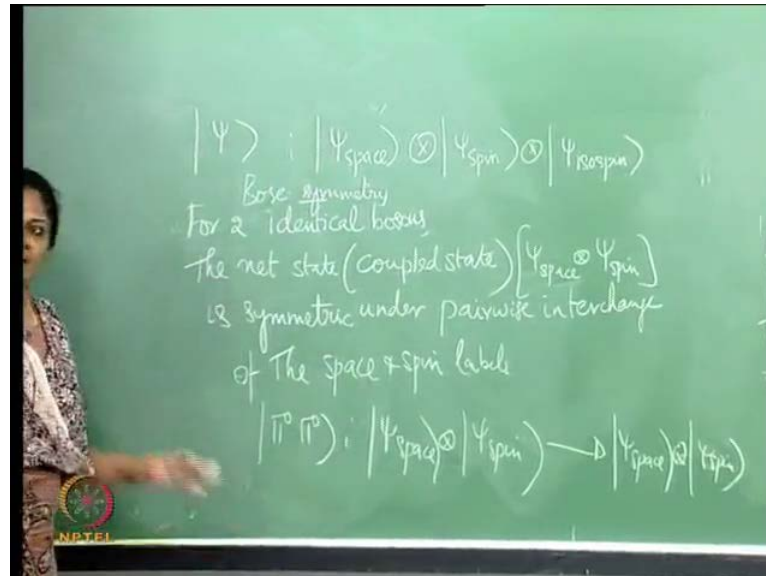 |Ψ⟩ : |Ψspace⟩ ⊗ |Ψspin⟩ ⊗ |Ψisospin⟩
Bose symmetry
For 2 identical bosons,
The net state (coupled state) [Ψspace ⊗ Ψspin]
is symmetric under pairwise interchange
of The space & spin labels
|π⁰ π⁰⟩ : |Ψspace⟩ ⊗ |Ψspin⟩ → |Ψspace⟩ ⊗ |Ψspin⟩
NPTEL